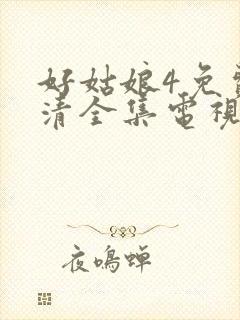 好姑娘4免
清全集電視
夜鳴蟬